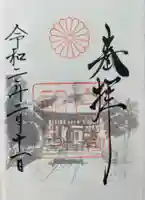 奉拝
令和二年二月十一日